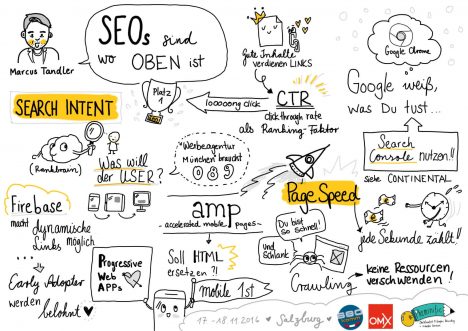 SEOs sind
wo OBEN ist
Marcus Tandler
Gute Inhalte
verdienen LINKS
Google Chrome
Google weiß,
was Du tust...
Search
Console nutzen!!
siehe CONTINENTAL
jede Sekunde zählt!!
keine Ressourcen
verschwenden!
SEARCH INTENT
(Rankbrain)
Was will
der USER?
Platz
1
looooong click
CTR
click through rate
als Ranking-Faktor
"Werbeagentur
München braucht
089
Page Speed
amp
- accelerated mobile pages -
Du bist
so schnell!
Und
Schlank
Crawling
Firebase
macht dynamische
Links möglich
Early Adopter
werden
belohnt
Progressive
Web
APPs
Soll HTML
ersetzen?!
mobile 1st
17.-18.11.2016 Salzburg
SEO
OMX